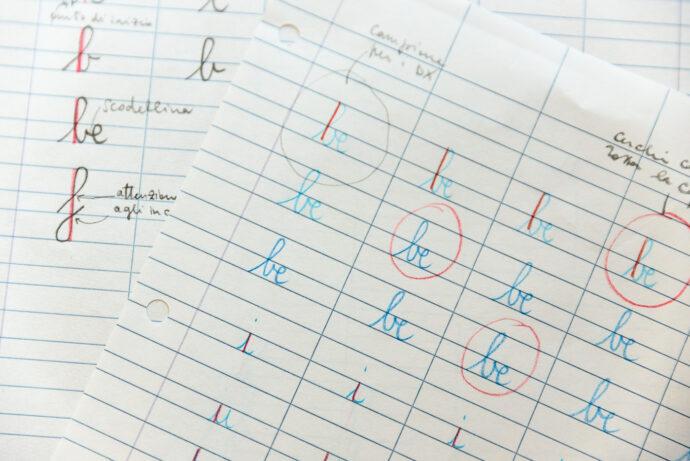 punto di inizio
b b
be scodellina
f attenzione
agli inc
campione
per i DX
be be be be
be be be be
be be be be
i i i
u